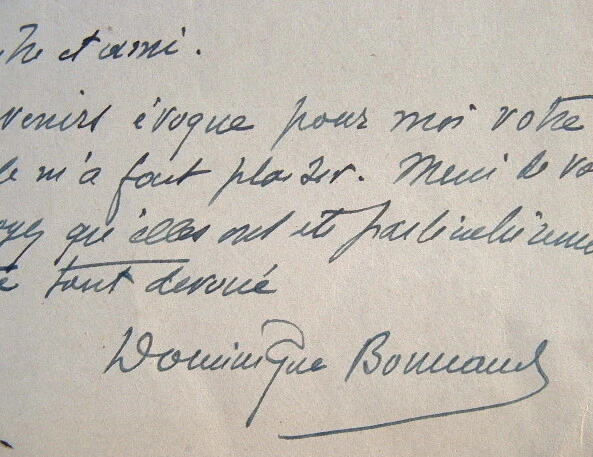 tre et ami.
venirs évoque pour moi votre
le m'a fait plaisir. Merci de vo
oyez qu'elles ont été particulièreme
é tout dévoué
Dominique Bonnaud